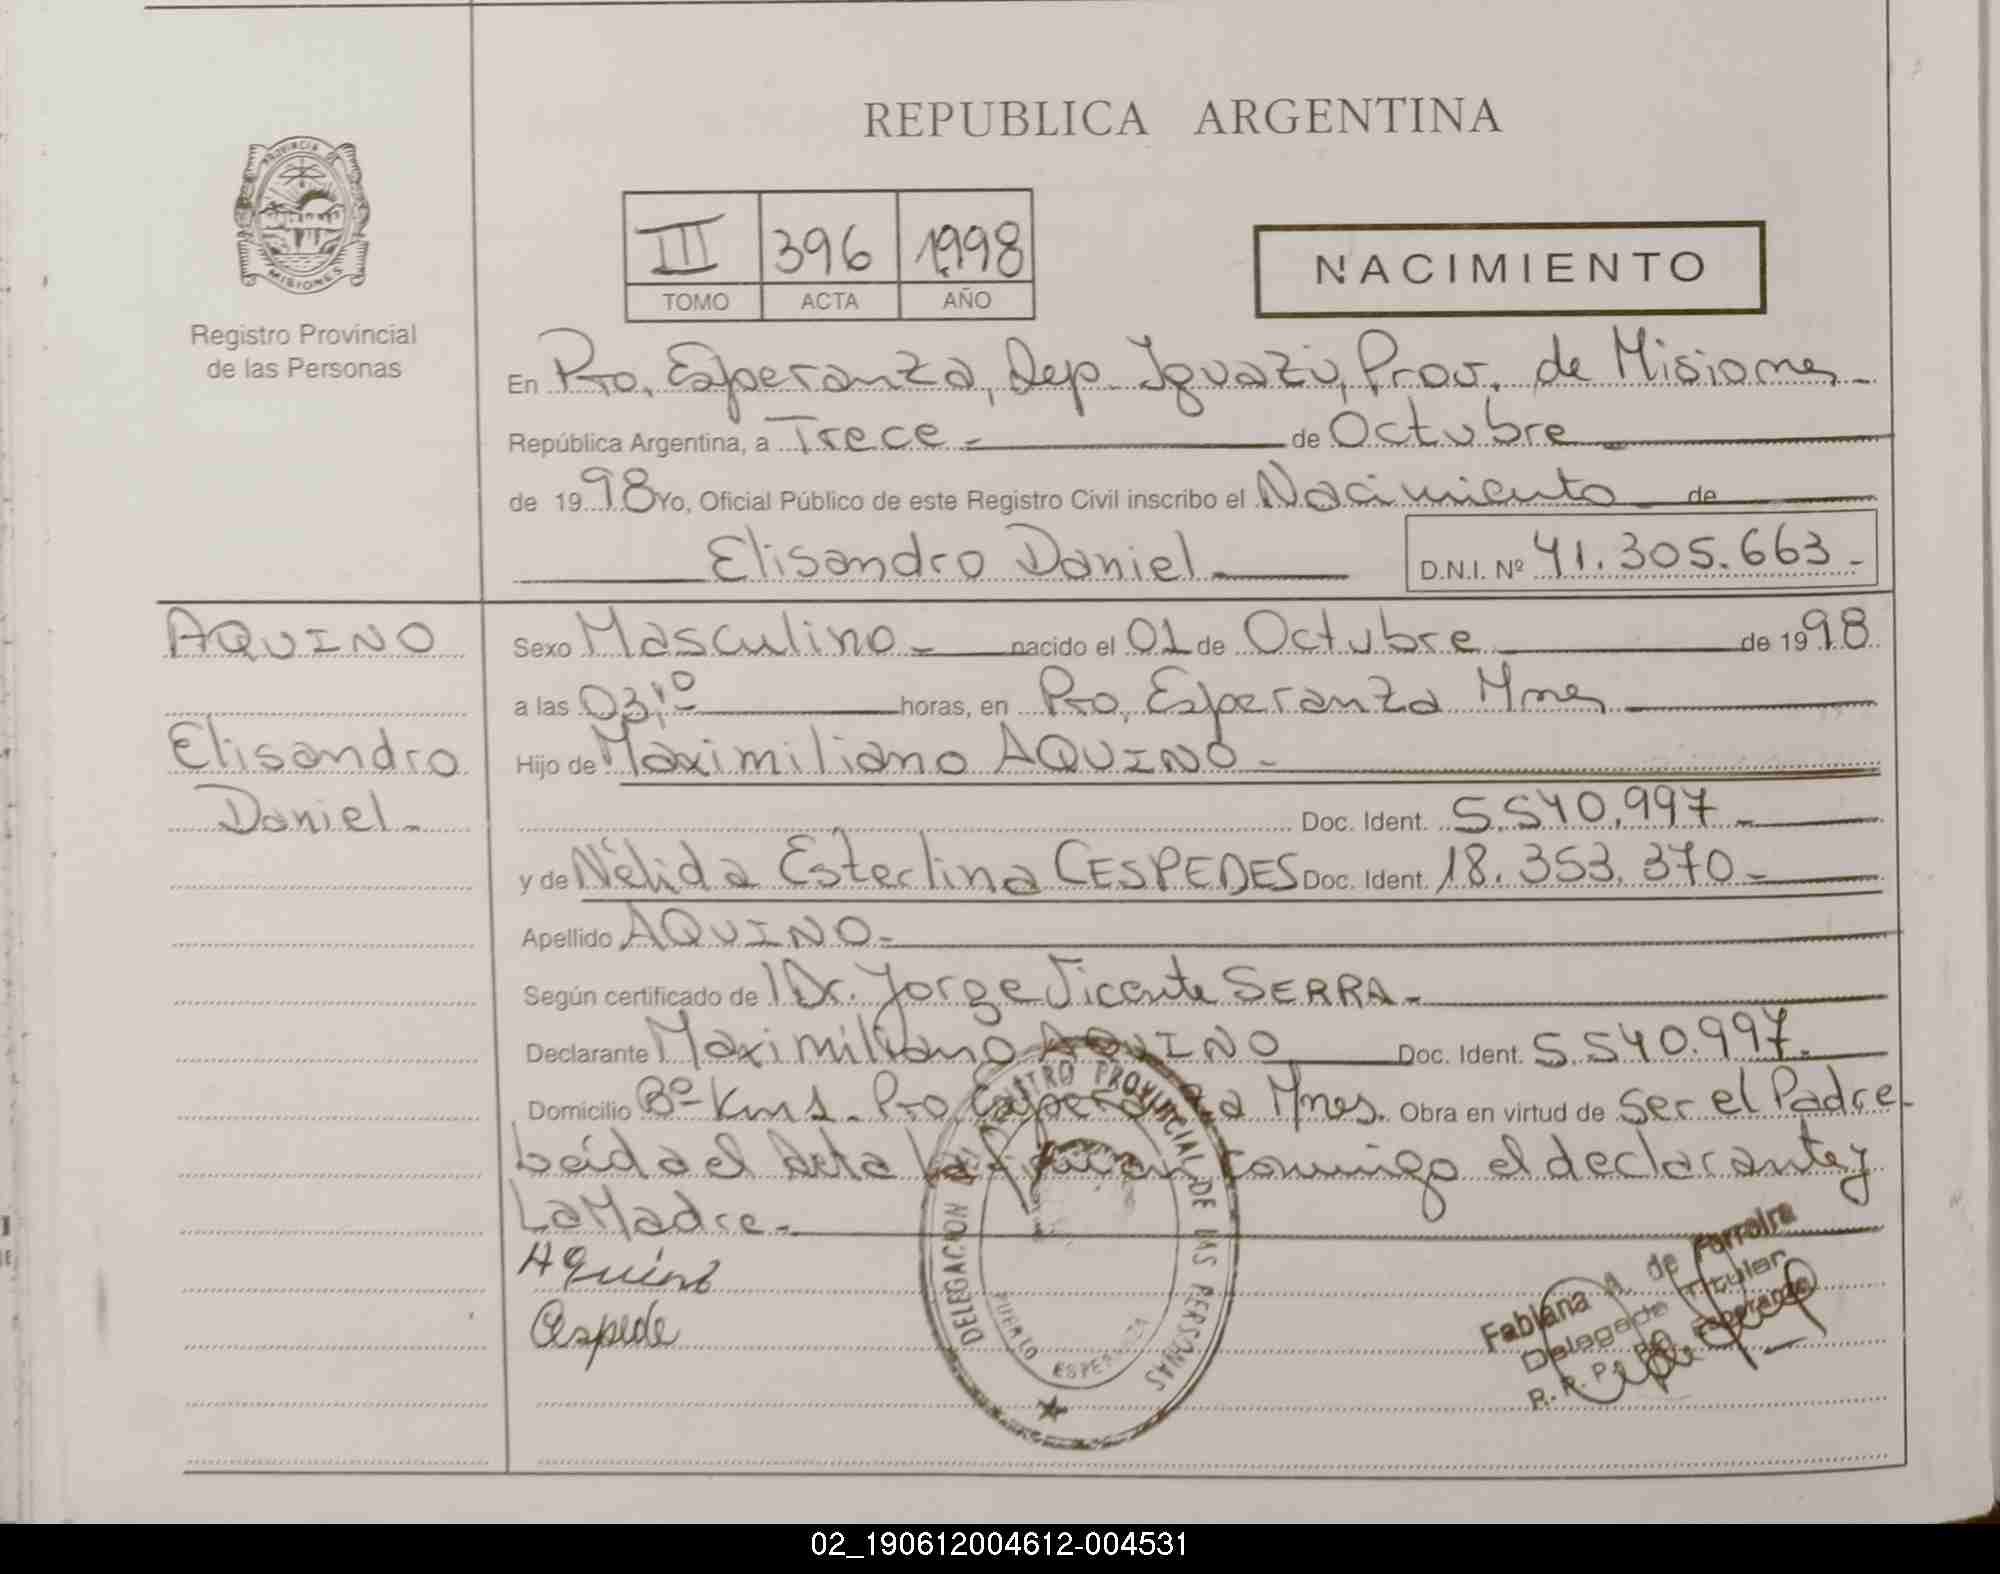 REPUBLICA ARGENTINA
PROVINCIA DE
MISIONES
Registro Provincial
de las Personas
III 396 1998
TOMO ACTA AÑO
NACIMIENTO
En Pto. Esperanza, Dep. Iguazú, Prov. de Misiones
República Argentina, a Trece de Octubre
de 1998 Yo, Oficial Público de este Registro Civil inscribo el Nacimiento de
Elisandro Daniel D.N.I. Nº 41.305.663
AQUINO
Elisandro
Daniel
Sexo Masculino nacido el 01 de Octubre de 1998
a las horas, en Pto. Esperanza Mnes
Hijo de Maximiliano AQUINO
Doc. Ident. 5.540.997
y de Nélida Esterlina CESPEDES Doc. Ident. 18.353.370
Apellido AQUINO
Según certificado de Dr. Jorge Vicente SERRA
Declarante Maximiliano AQUINO Doc. Ident. 5.540.997
Domicilio Bº Km 1. Pto Esperanza Mnes. Obra en virtud de Ser el Padre
Leída el Acta la firman conmigo el declarante y
La Madre
Aquino
Cespede
DELEGACION DEL REGISTRO PROVINCIAL DE LAS PERSONAS
PUERTO ESPERANZA
Fabiana A. de Ferreira
Delegada Titular
R. R. P. P. Pto Esperanza
02_190612004612-004531